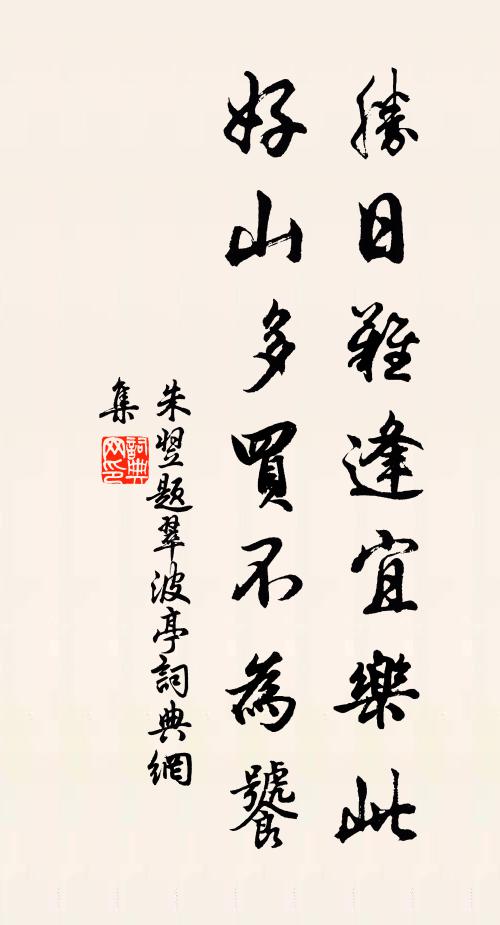 勝日難逢宜樂此
好山多買不為饕
朱翌題翠波亭詞典網
集
詞典
网印